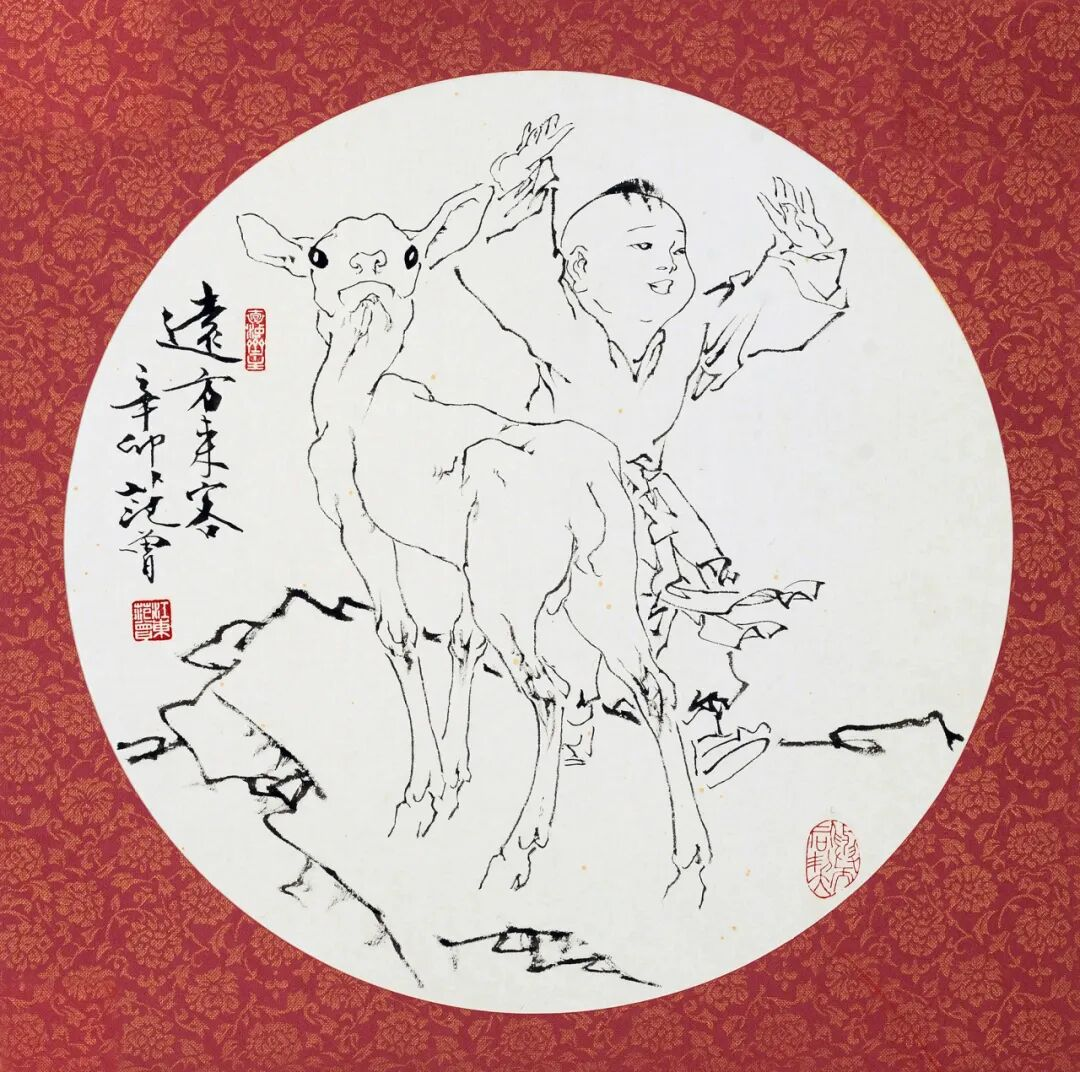 遠方来客
辛卯范曾
江東范曾